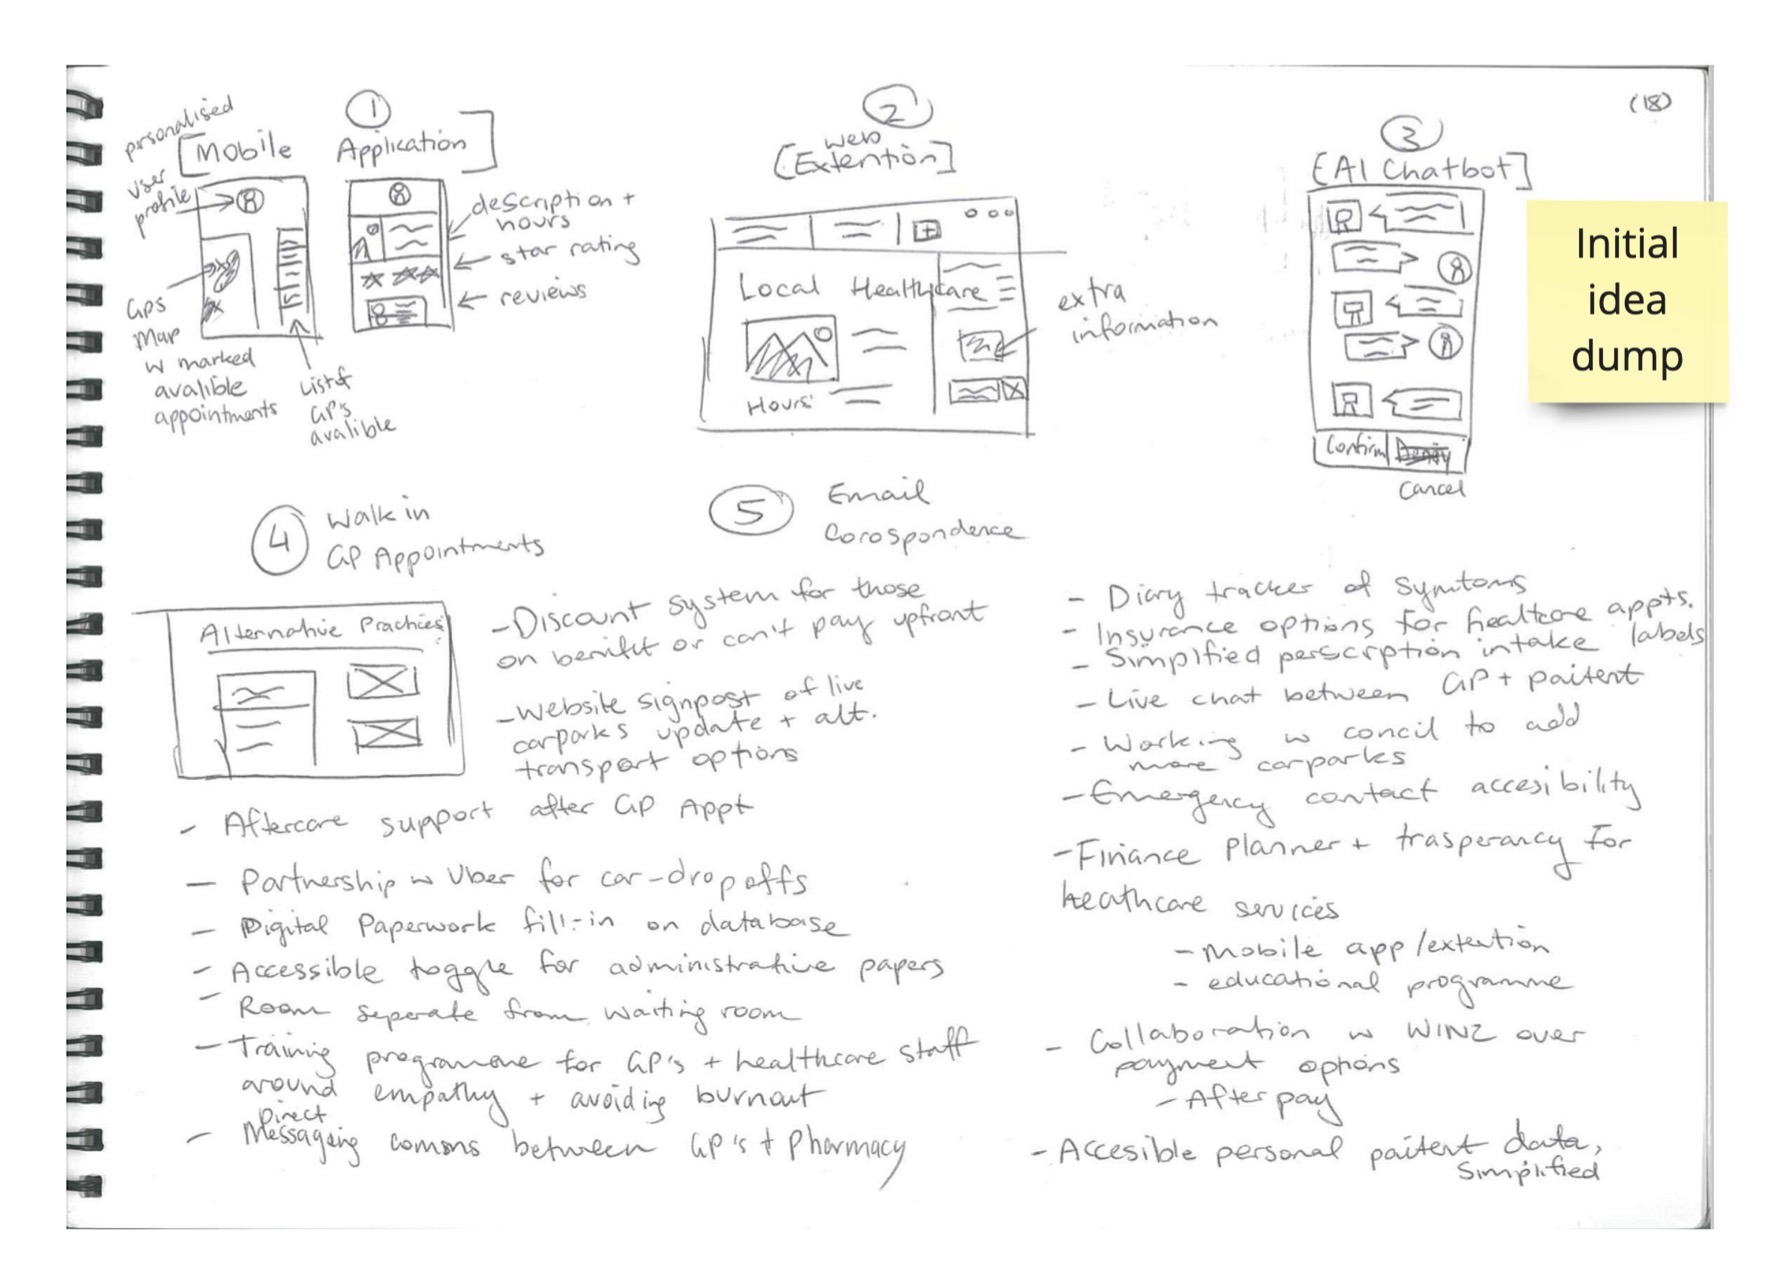 (18)
Initial
idea
dump
①
[Mobile Application]
personalised
user
profile
GPS
Map
w marked
avalible
appointments
List of
GP's
avalible
description +
hours
star rating
reviews
②
web
[Extention]
Local Healthcare
Hours
extra
information
③
[AI Chatbot]
Confirm
Cancel
④ Walk in
GP Appointments
Alternative Practices
⑤ Email
Corospondence
- Discount system for those
on benifit or can't pay upfront
- Website signpost of live
carparks update + alt.
transport options
- Aftercare support after GP Appt
- Partnership w Uber for car-dropoffs
- Digital Paperwork fill-in on database
- Accessible toggle for administrative papers
- Room seperate from waiting room
- Training programme for GP's + healthcare staff
around empathy + avoiding burnout
Direct
- Messaging comms between GP's + Pharmacy
- Diary tracker of symtoms
- Insurance options for healtcare appts.
- Simplified perscription intake labels
- Live chat between GP + paitent
- Working w concil to add
more carparks
- Emergency contact accesibility
- Finance Planner + trasperancy for
heathcare services
- Mobile app/extention
- educational programme
- Collaboration w WINZ over
payment options
- After pay
- Accesible personal paitent data,
Simplified